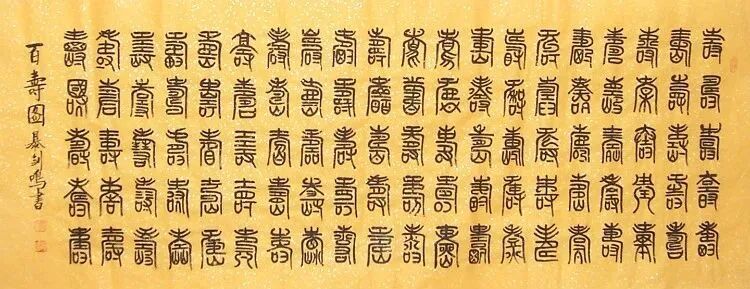 壽壽壽壽壽
壽壽壽壽壽
壽壽壽壽壽
壽壽壽壽壽
壽壽壽壽壽
壽壽壽壽壽
壽壽壽壽壽
壽壽壽壽壽
壽壽壽壽壽
壽壽壽壽壽
壽壽壽壽壽
壽壽壽壽壽
壽壽壽壽壽
壽壽壽壽壽
壽壽壽壽壽
壽壽壽壽壽
壽壽壽壽壽
壽壽壽壽壽
壽壽壽壽壽
壽壽壽壽壽
百壽圖 書